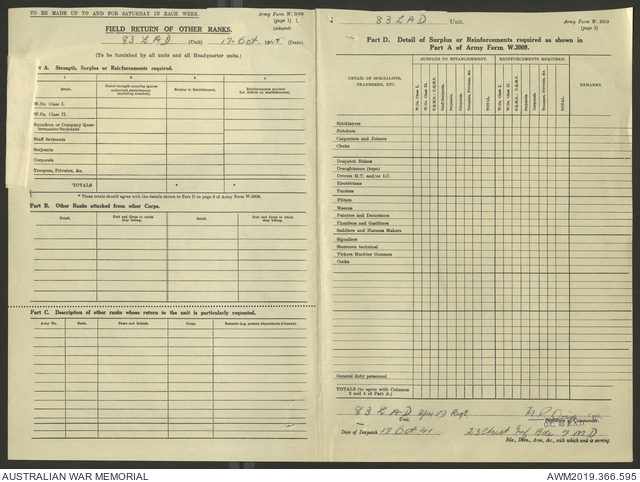 TO BE MADE UP TO AND FOR SATURDAY IN EACH WEEK.
Army Form W. 3009
(page 1)
(Adapted)
FIELD RETURN OF OTHER RANKS.
83 LAD (Unit) 17 Oct (Date).
(To be furnished by all units and all Headquarter units.)
Part A. Strength, Surplus or Reinforcements required.
1 2 3 4
Detail. Posted strength counting against authorized establishment (including attached). Surplus to Establishment. Reinforcements required (i.e. deficits on establishment).
W.Os. Class I.
W.Os. Class II.
Squadron or Company Quar-
termaster-Serjeants
Staff Serjeants
Serjeants
Corporals
Troopers, Privates, &c.
TOTALS * *
* These totals should agree with the details shown in Part D on page 2 of Army Form W.3009.
Part B. Other Ranks attached from other Corps.
Detail. Unit and Corps to which they belong. Detail. Unit and Corps to which they belong.
Part C. Description of other ranks whose return to the unit is particularly requested.
Army No. Rank. Name and Initials. Corps. Remarks (e.g. present whereabouts if known).
83 LAD Unit.
Army Form W. 3009
(page 2)
Part D. Detail of Surplus or Reinforcements required as shown in
Part A of Army Form W.3009.
DETAIL OF SPECIALISTS, TRADESMEN, ETC.
SURPLUS TO ESTABLISHMENT. REINFORCEMENTS REQUIRED.
W.Os. Class I. W.Os. Class II. S.Q.M.S. / C.Q.M.S. Staff-Serjeants Serjeants Corporals Troopers, Privates, &c. TOTAL. W.Os. Class I. W.Os. Class II. S.Q.M.S. / C.Q.M.S. Serjeants Corporals Troopers, Privates, &c. TOTAL.
REMARKS.
Bricklayers
Butchers
Carpenters and Joiners
Clerks
Despatch Riders
Draughtsmen (topo)
Drivers H.T. and/or I.C.
Electricians
Farriers
Fitters
Masons
Painters and Decorators
Plumbers and Gasfitters
Saddlers and Harness Makers
Signallers
Storemen technical
Vickers Machine Gunners
Cooks
General duty personnel
TOTALS (to agree with Columns
3 and 4 of Part A.)
83 LAD Regt
Unit.
Signature of Commander.
Date of Despatch 17 Oct 41 23 Inf Bde 7 MD
Bde., Divn., Area, &c., with which unit is serving.
AUSTRALIAN WAR MEMORIAL
AWM2019.366.595